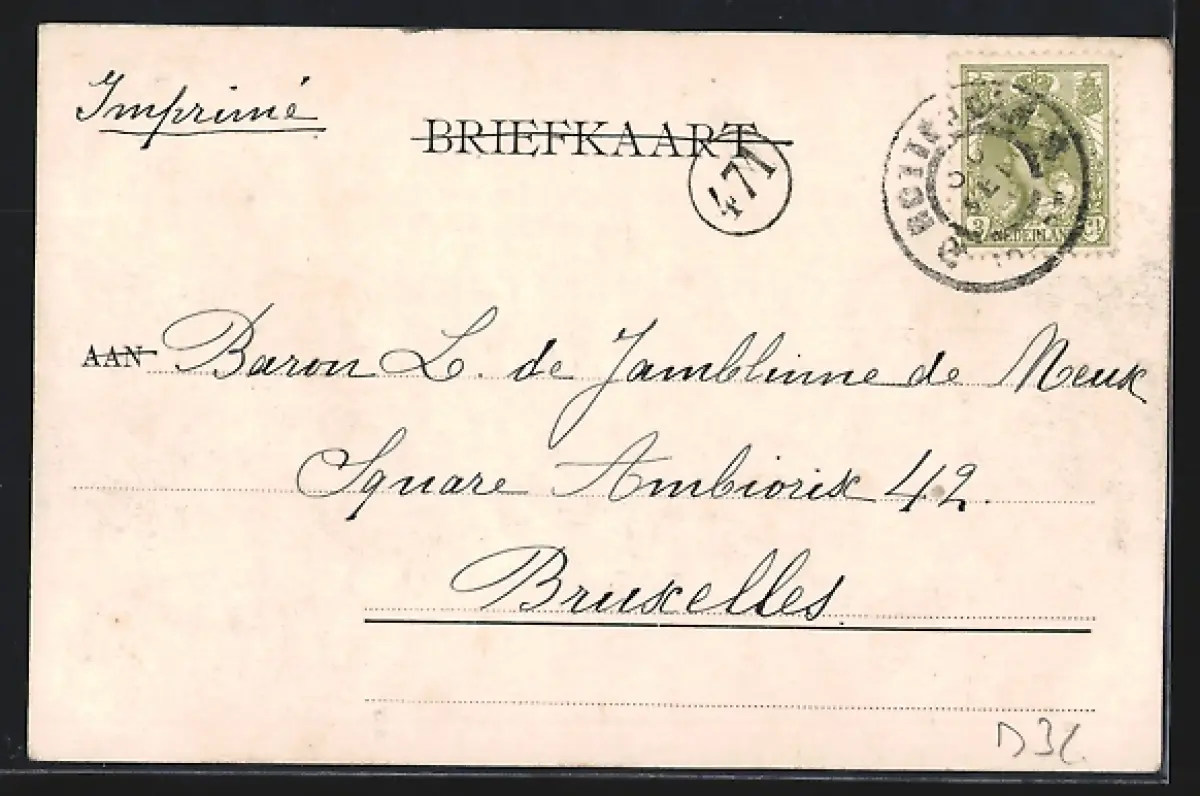 Imprimé
BRIEFKAART
471
ROTTERDAM
3 ct
NEDERLAND
AAN Baron L. de Jamblinne de Meux
Square Ambiorix 42.
Bruxelles